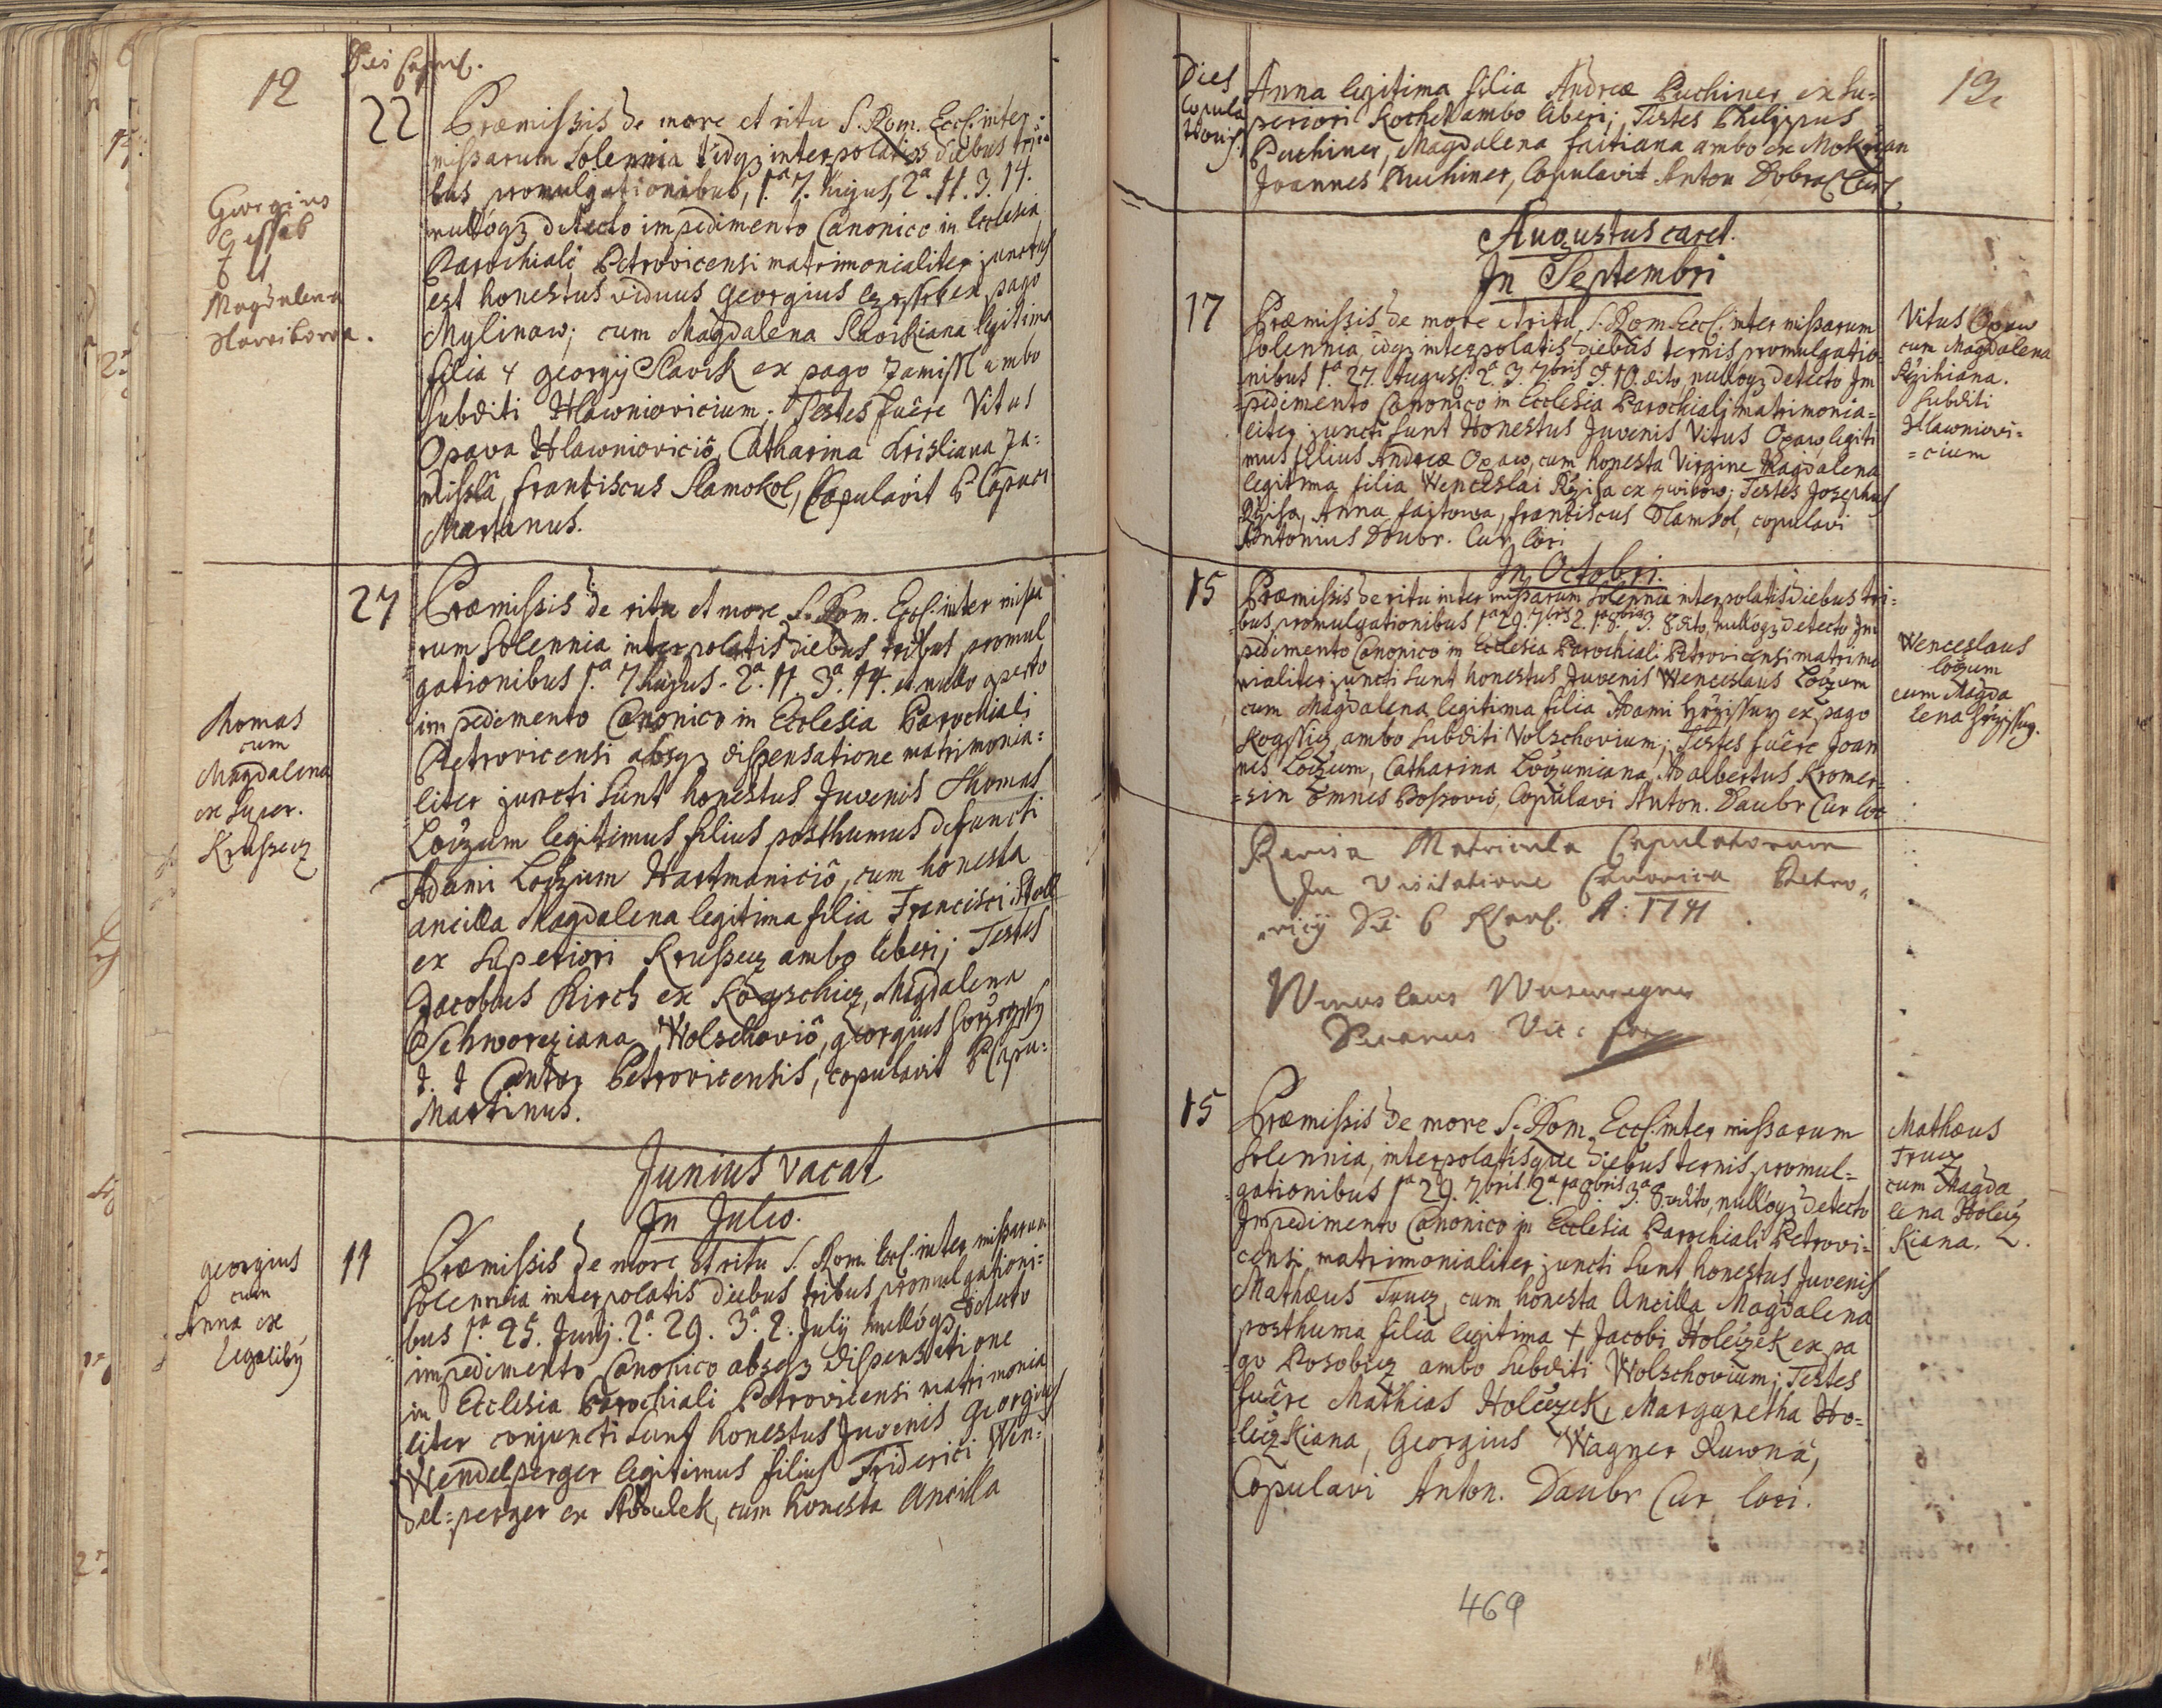 12
22 Præmissis de more et ritu S. Rom. Eccl. inter
missarum Solennia idq3 interpolatis diebus tri
bus promulgationibus, 1.ª 7. hujus, 2ª. 11. 3. 14.
nulloq3 detecto impedimento Canonico in Ecclesia
Parochiali Petrovicensi matrimonialiter junctus
est honestus viduus Georgius ex pago
Mylinaw; cum Magdalena Slavikiana legitima
filia + georgij Slavik ex pago Zamissl ambo
Subditi Hlawniovicium; Testes fuêre Vitus
Opava Hlawniovicio, Catharina Krisliana Za=
misslâ, franciscus Slamokol, Copulavit P Capuci
Martinus.
Georgius
et
Magdalena
Slavikova.
27 Præmissis de ritu et more S. Rom. Eccl. inter missa
rum Solennia interpolatis diebus tribus promul
gationibus 1.ª 7 hujus. 2ª. 11. 3ª. 14. et nullo aperto
impedimento Canonico in Ecclesia Parochiali
Petrovicensi absq3 dispensatione matrimonia=
liter juncti sunt honestus Juvenis Thomas
Loizum legitimus filius posthumus defuncti
Adami Loizum Hartmaniciô, cum honesta
ancilla Magdalena legitima filia Francisci Stoll
ex Superiori Krussecz ambo liberi; Testes
Jacobus Kirch ex Kogschicz, Magdalena
Schworziana Wolschoviô, georgius
Cantor Petrovicensis, copulavit P Capu=
Martinus.
Thomas
cum
Magdalena
ex Super.
Krussecz
Junius vacat
In Julio.
11 Præmissis de more et ritu S. Rom. Eccl. inter missarum
Solennia interpolatis diebus tribus promulgationi=
bus 1.ª 25. Junij. 2ª. 29. 3ª. 2. Julij nulloq3 detecto
impedimento Canonico absq3 dispensatione
in Ecclesia Parochiali Petrovicensi matrimonia
liter conjuncti sunt honestus Juvenis Georgius
Wendelperger legitimus filius Friderici Wen=
del=perger ex, cum honesta Ancilla
georgius
cum
Anna ex
13
Dies
Copula
tionis
Anna legitima filia Andreæ Puchiner ex Su=
periori Kochet ambo liberi; Testes Philippus
Puchiner, Magdalena faitiana ambo ex
Joannes Puchiner, Copulavit Anton
Augustus caret.
In Septembri
17 Præmissis de more et ritu S. Rom. Eccl. inter missarum
Solennia, idq3 interpolatis diebus ternis promulgatio
nibus 1.ª 27. August. 2.ª 3. 7bris 3. 10. dito nulloq3 detecto Im
pedimento Canonico in Ecclesia Parochiali matrimonia=
liter juncti sunt Honestus Juvenis Vitus Opaw, legiti
mus filius Andreæ Opaw, cum honesta Virgine Magdalena
legitima filia Wenceslai Rziha ex; Testes Josephus
Rziha, Anna, franciscus Slamkol, copulavi
Antonius Doubr. Cur. loci.
Vitus Opaw
cum Magdalena
Rzihiana.
Subditi
Hlawniovi=
=cium
In Octobri.
15 Præmissis de ritu inter missarum Solennia interpolatis diebus tri=
bus promulgationibus 1ª 29. 7bris 2. 1ª 8bris 3. 8 dito, nulloq3 detecto Im
pedimento Canonico in Ecclesia Parochiali Petrovicensi matrimo
nialiter juncti sunt honestus Juvenis Wenceslaus Loizum
cum Magdalena legitima filia Adami ex pago
ambo Subditi Volschovium; Testes fuêre Joan
nes Loizum, Catharina Loizumiana, Adalbertus Kromer=
=sin omnes, Copulavi Anton. Daubr Cur loc
Wenceslaus
loizum
cum Magda
lena
Revisa Matricula Copulatorum
In Visitatione Canonica Petro„
„vicij Die 6 A: 1741
15 Præmissis de more S. Rom. Eccl. inter missarum
Solennia, interpolatisque diebus ternis promul=
gationibus 1ª 29. 7bris. 2ª. 1ª 8bris 3ª 8. dito, nulloq3 detecto
Impedimento Canonico in Ecclesia Parochiali Petrovi=
censi matrimonialiter juncti sunt honestus Juvenis
Mathæus Trucz, cum honesta Ancilla Magdalena
posthuma filia legitima + Jacobi Holeczek ex pa
go ambo Subditi Wolschovium; Testes
fuêre Mathias Holeczek, Margaretha Ho=
leczkiana, Georgius Wagner,
Copulavi Anton. Daubr Cur loci.
Mathæus
Trucz
cum Magda
lena Holecz
Kiana.
469